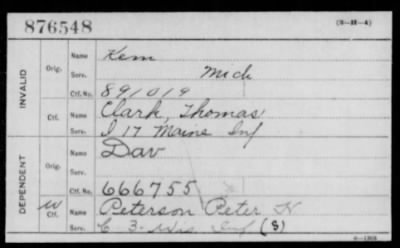 876548 (3-28-4)
INVALID
Orig.
Name Kem
Serv. Mich
Ctf. No. 891019
Ctf.
Name Clark, Thomas
Serv. I 17 Maine Inf
DEPENDENT
Orig.
Name Dav
Serv.
Ctf. No. 666755
W Ctf.
Name Peterson Peter H
Serv. C 3 Wis Inf (S)